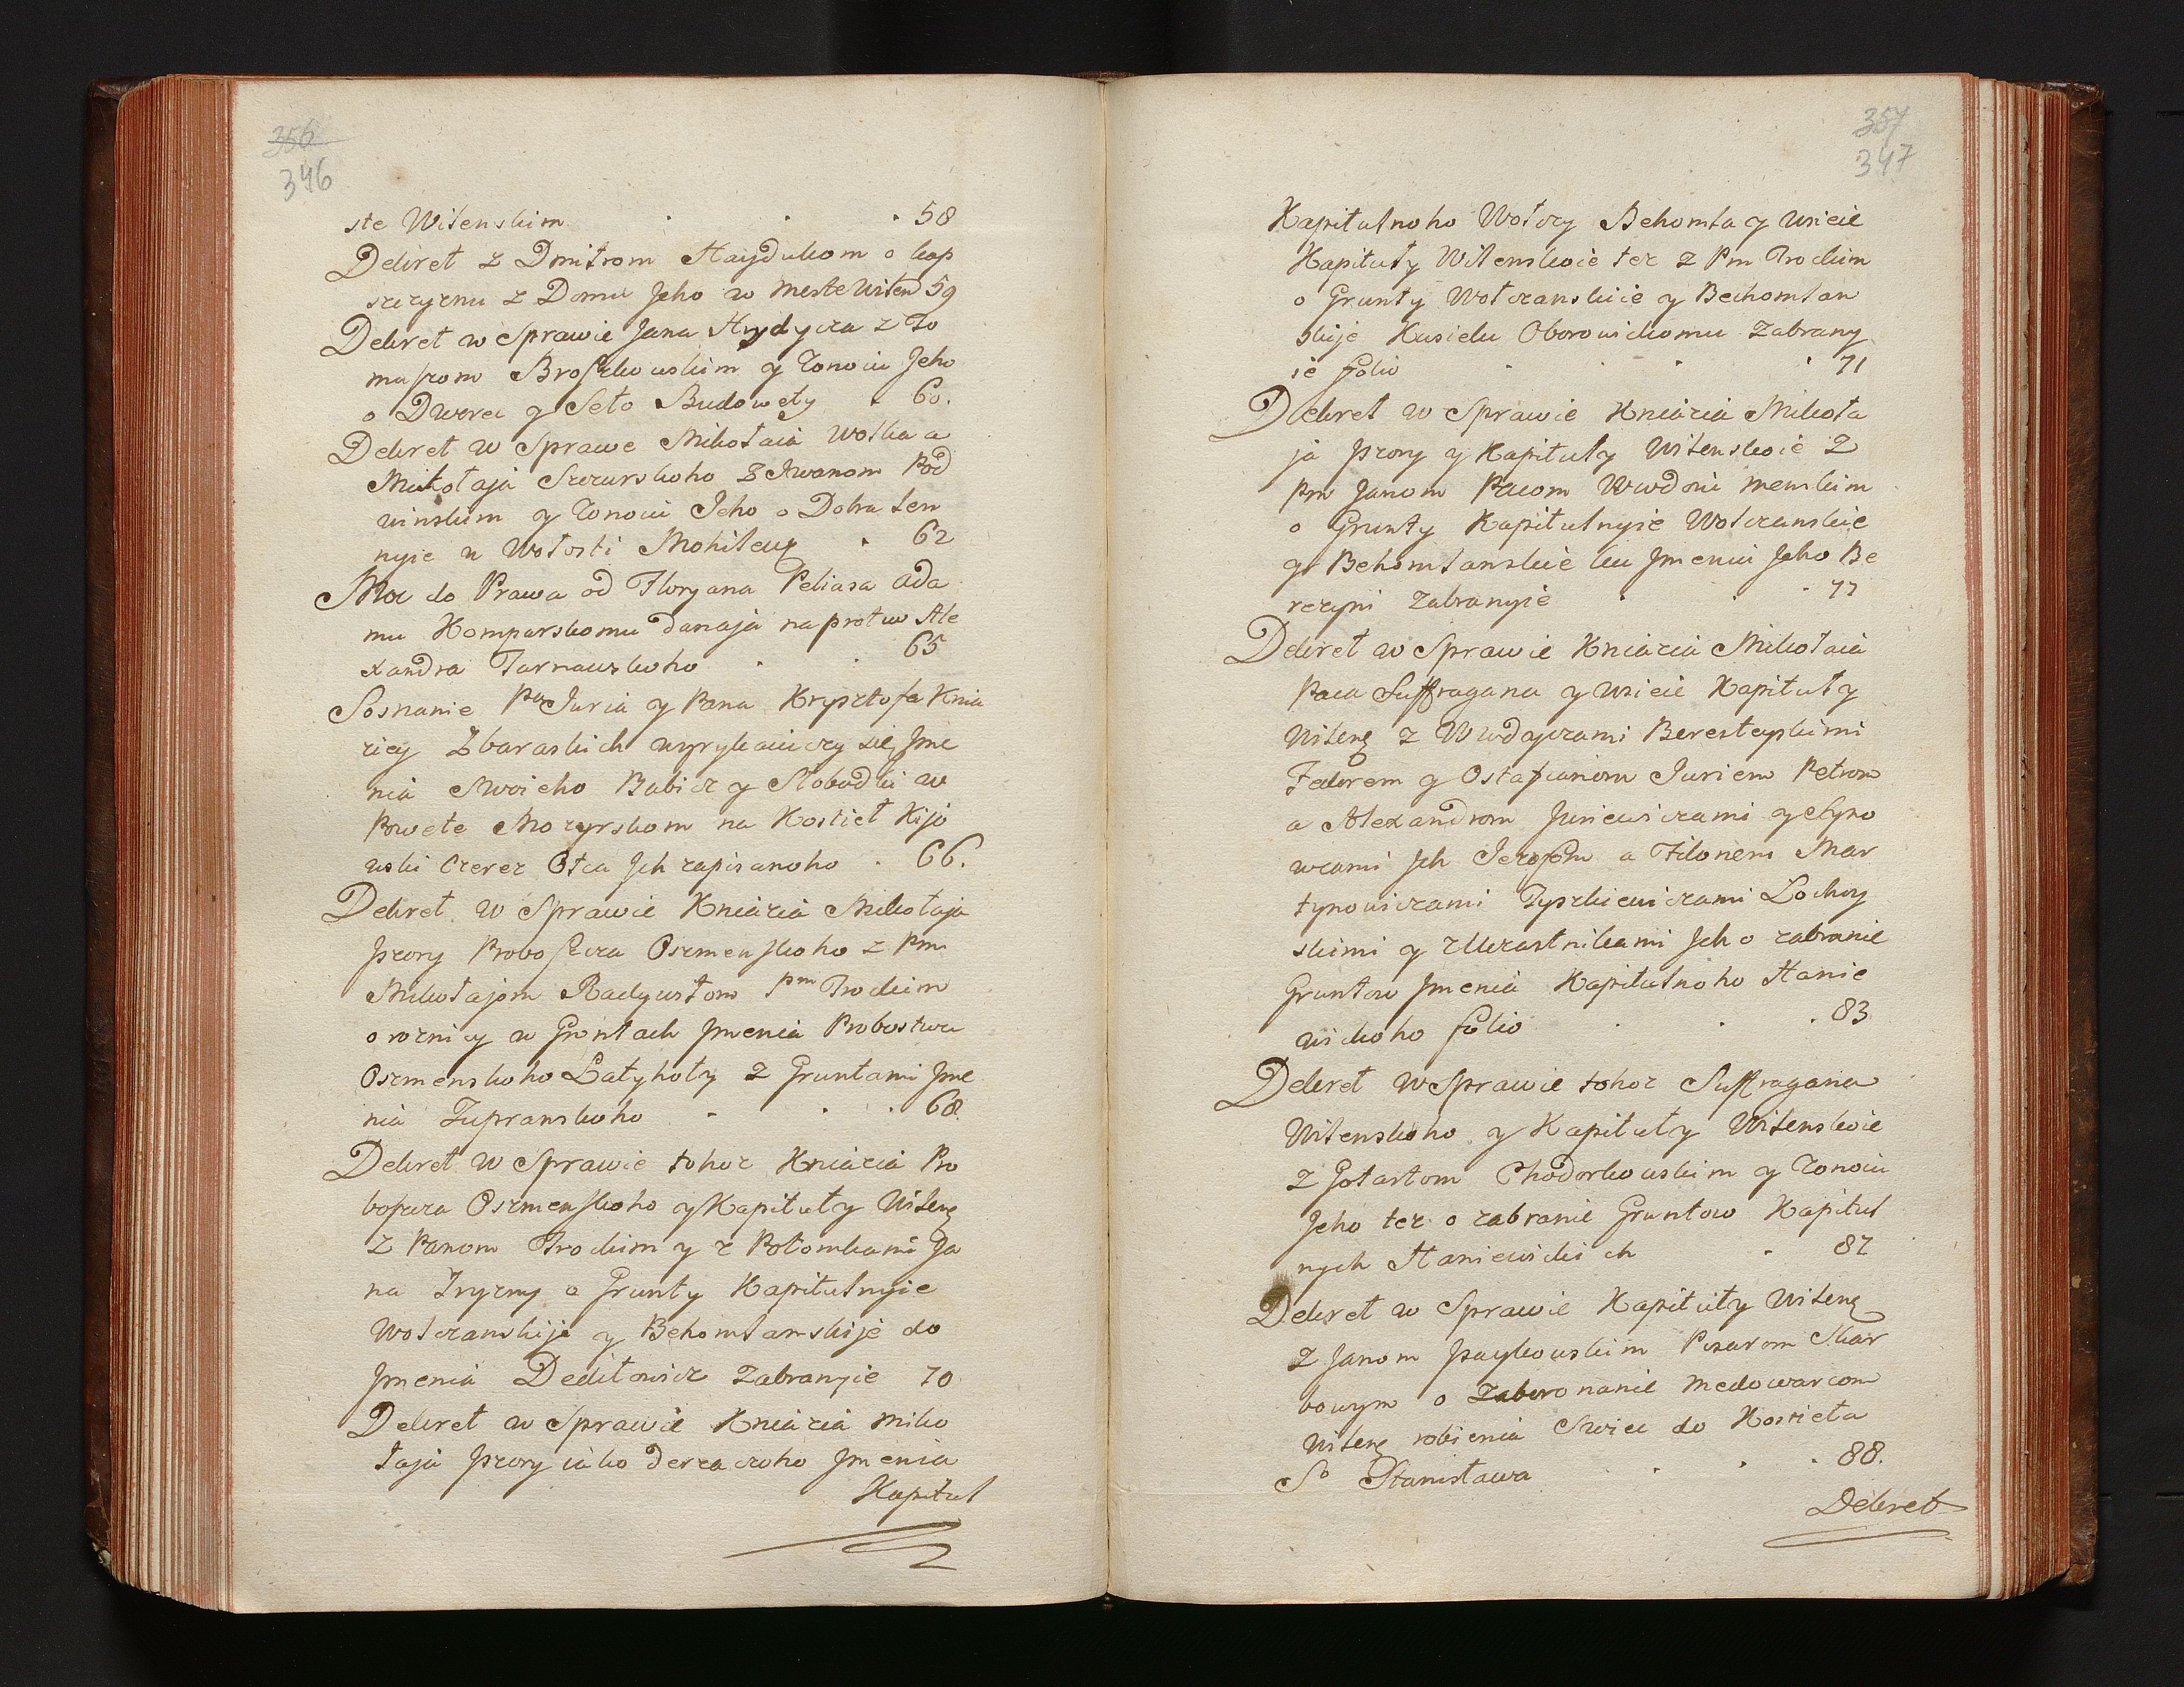 356
346
ste Wilenskim . . . 58
Dekret z Dmitrom Haydukom o kap
szczyznu z Domu Jeho w meste Wilen 59
Dekret w Sprawie Jana Hrydycza z To
maszom Broszkowskim y Zonoiu Jeho
o Dworec y Seło Budowęty . 60.
Dekret w Sprawe Mikołaia Wolka a
Mikołaja Szczurskoho z Iwanom Pod
winskim y Zonoiu Jeho o Dobra len
nyie u Wołosti Mohilew . 62
Moc do Prawa od Floryana Peliasa Ada
mu Komparskomu danaja naprotiw Ale
xandra Tarnawskoho . . 65
Sosnanie Pa Juria y Pana Krysztofa Knia
ziey Zbaraskich wyrykaiuczy się Jme
nia Swoieho Babicz y Słobodki w
Powete Mozyrskom na Kosticł Kijo
wski Czerez Otca Jch zapisanoho . 66.
Dekret w Sprawie Kniazia Mikołaja
Jzory Proboszcza Oszmenskoho z Pm
Mikołajom Radywiłom Pm Trockim
o roznicy w Gruntach Jmenia Probostwa
Oszmenskoho Łatyhoły z Gruntami Jme
nia Zupranskoho . . . 68.
Dekret w Sprawie tohoz Kniazia Pro
boszcza Oszmenskoho y Kapituły Wilenę
z Panom Trockim y z Potomkami Ja
na Zryzny o Grunty Kapitulnyie
Wołczanskije y Behomlanskije do
Jmenia Dediłowicz Zabranyie 70
Dekret w Sprawie Kniazia Miko
łaja Jzory iako derzaczoho Jmenia
Kapitul
357
347
Kapitulnoho Wołczy Behomla y wsieie
Kapituły Wilenskoie tez z Pm Trockim
o Grunty Wołczanskiie y Bechomlan
skije Kusielu Oborowickomu Zabrany
ie folio . . . 71
Dekret w Sprawie Kniazia Mikoła
ja Jzory y Kapituły Wilenskoie z
Pm Janom Pacom Wwdoiu menskim
o Grunty Kapitulnyie Wołczanskiie
y Behomlanskiie ku Jmeniu Jeho Be
rezyni zabranyie . . . 77
Dekret w Sprawie Kniazia Mikołaia
Paca Suffragana y wsieie Kapituły
Wilenę z Wwdayczami Beresteyskimi
Fedorem y Ostafianom Juriem Petrom
a Alexandrom Juniewiczami y Syno
wcami Jch Jezofom a Filonem Mar
tynowiczami Tyszkiewiczami Łochoy
skimi y z Uczastnikami Jch o zabranie
Gruntow Jmenia Kapitulnoho Hanie
wickoho folio . . . 83
Dekret w Sprawie tohoz Suffragana
Wilenskoho y Kapituły Wilenskoie
z Gotartom Chodorkowskim y Zonoiu
Jeho tez o zabranie Gruntow Kapitul
nych Haniewickich . 87
Dekret w Sprawie Kapituły Wilenę
z Janom Jzaykowskim Pisarom Skar
bowym o Zaboronanie medowarcom
Wilenę robienia Swiec do Kosticła
So Stanisława . . . 88.
Dekret